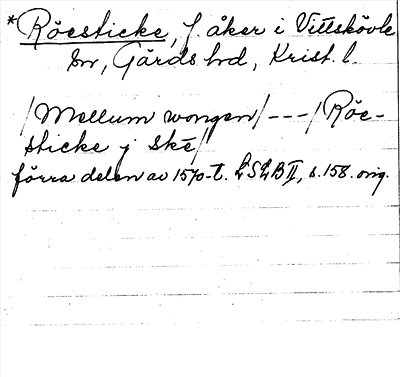 *Röesticke, f. åker i Vittskövle
sn, Gärds hd, Krist. l.
/Mellum wongen/ --- / Röe-
sticke j ske/
förra delen av 1570-t. LSLB II, s. 158. orig.